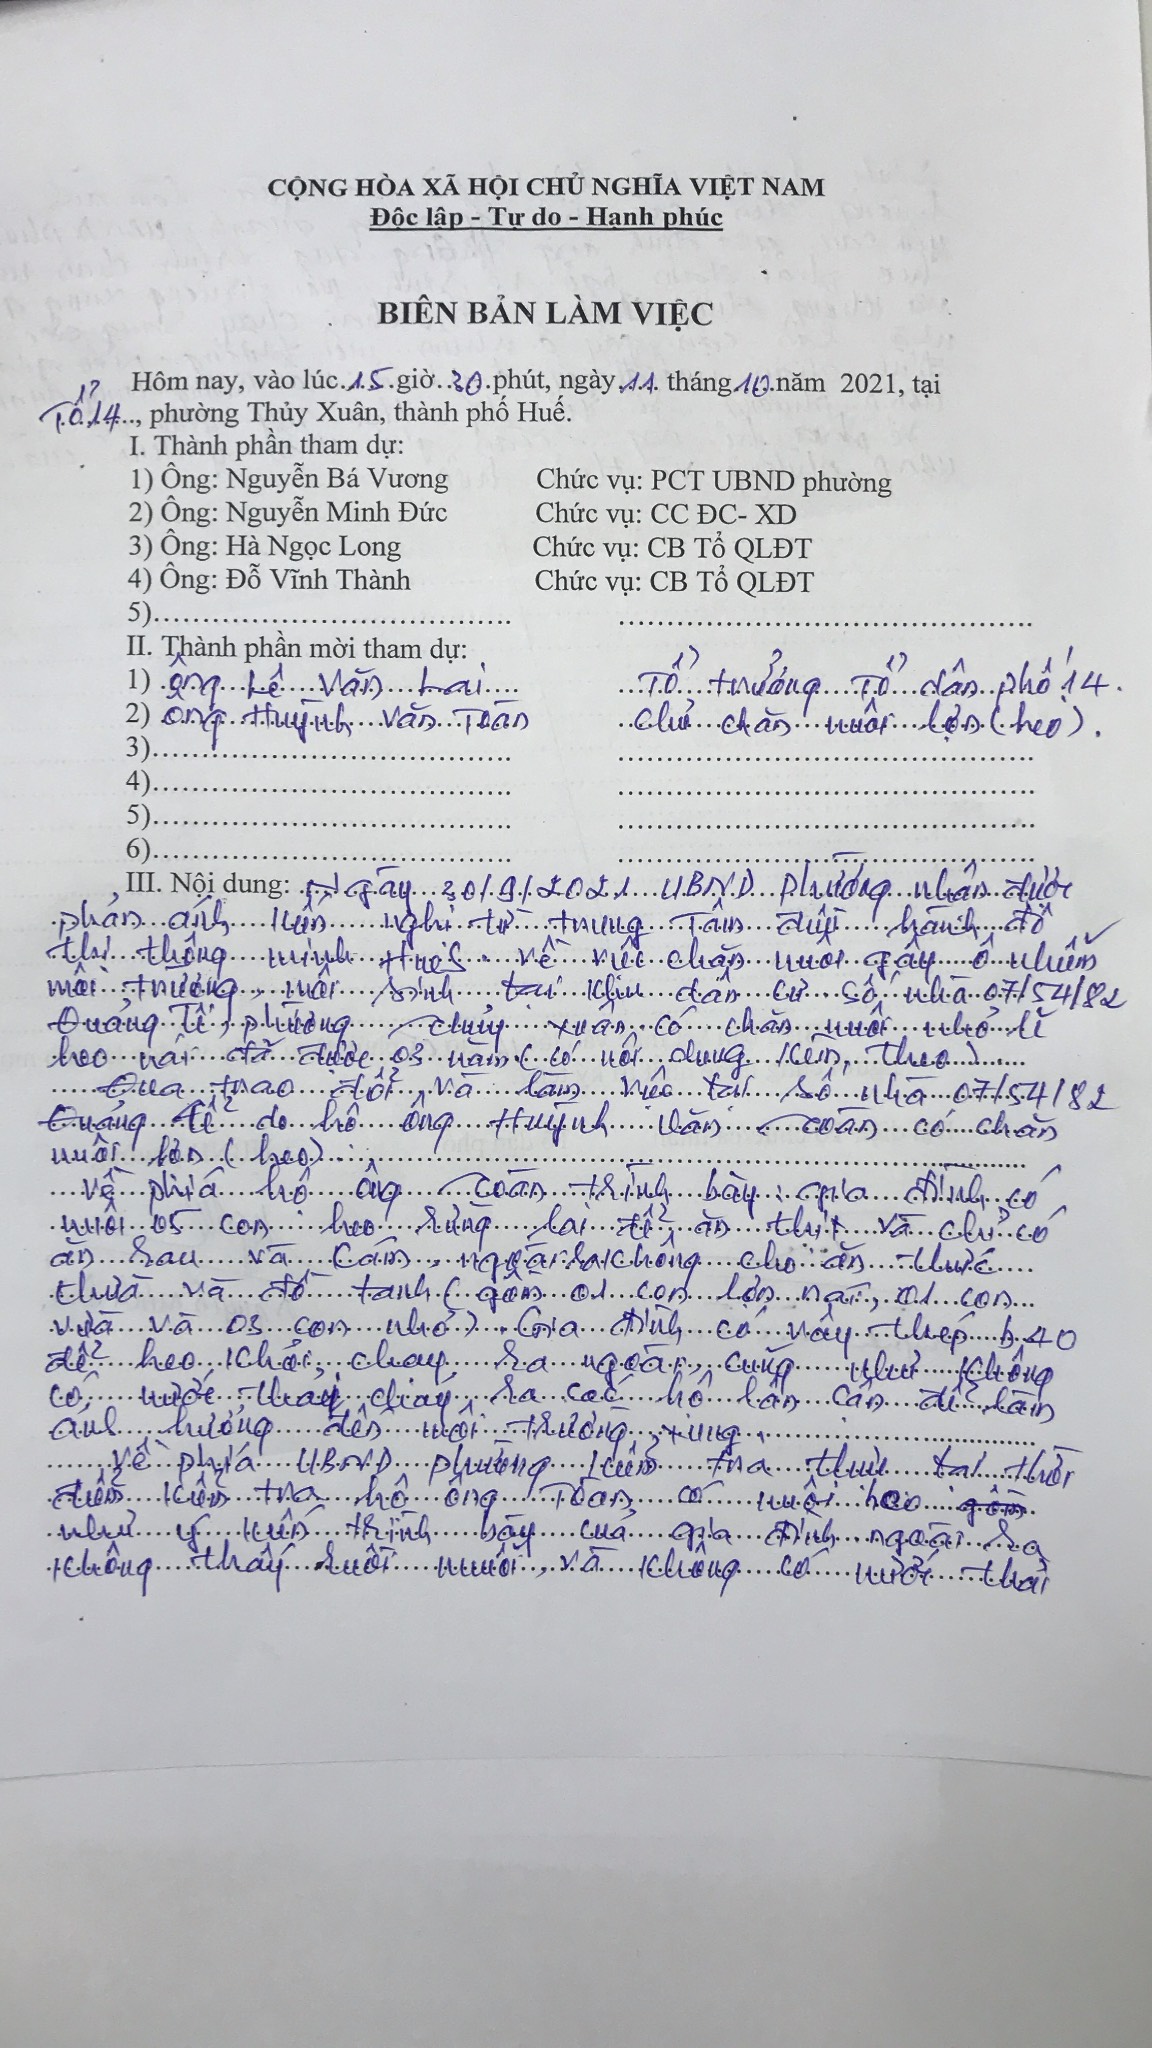 CỘNG HÒA XÃ HỘI CHỦ NGHĨA VIỆT NAM
Độc lập - Tự do - Hạnh phúc
BIÊN BẢN LÀM VIỆC
Hôm nay, vào lúc 15 giờ 30 phút, ngày 11 tháng 10 năm 2021, tại
Tổ 14, phường Thủy Xuân, thành phố Huế.
I. Thành phần tham dự:
1) Ông: Nguyễn Bá Vương Chức vụ: PCT UBND phường
2) Ông: Nguyễn Minh Đức Chức vụ: CC ĐC- XD
3) Ông: Hà Ngọc Long Chức vụ: CB Tổ QLĐT
4) Ông: Đỗ Vĩnh Thành Chức vụ: CB Tổ QLĐT
5)
II. Thành phần mời tham dự:
1) Ông Lê Văn Lai Tổ trưởng Tổ dân phố 14.
2) Ông Huỳnh Văn Toàn Chủ chăn nuôi lợn (heo).
3)
4)
5)
6)
III. Nội dung: Ngày 30/9/2021 UBND phường nhận được
phản ánh, kiến nghị từ trung Tâm điều hành đô
thị thông minh HueS về việc chăn nuôi gây ô nhiễm
môi trường, mất sinh tại khu dân cư số nhà 07/54/82
Quảng Tế, phường Thủy Xuân có chăn nuôi nhỏ lẽ
heo nái đã được 03 năm (có nội dung kèm theo)
Qua trao đổi và làm việc tại số nhà 07/54/82
Quảng Tế do hộ ông Huỳnh Văn Toàn có chăn
nuôi lợn (heo)
Về phía hộ ông Toàn trình bày: gia đình có
nuôi 05 con heo rừng lai để ăn thịt và chỉ có
ăn rau và Cám, ngoài ra không cho ăn thức
thừa và đồ tanh (gồm 01 con lợn nái, 01 con
vừa và 03 con nhỏ). Gia đình có vây thép b40
để heo khỏi chạy ra ngoài, cũng như không
có nước thải chảy ra các hộ lân cận để làm
anh hưởng đến môi trường xung.
Về phía UBND phường kiểm tra thực tại thời
điểm kiểm tra hộ ông Toàn có nuôi heo gồm
như ý kiến trình bày của gia đình ngoài ra
không thấy ruồi muỗi, và không có nước thải